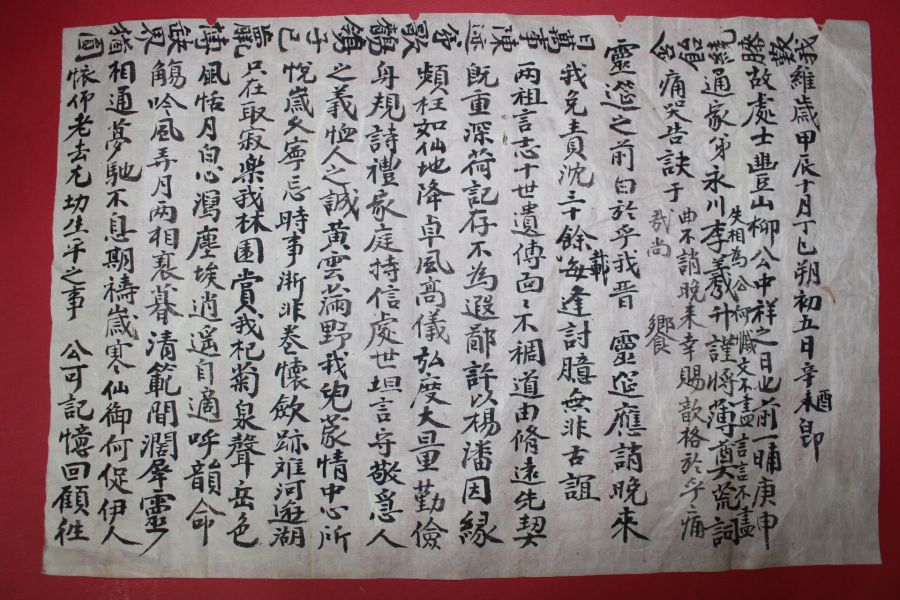 維歲甲辰十月丁巳朔初五日辛酉
故處士豊山柳公中祥之日也前一晡庚申
通家弟永川李羲升謹將薄奠荒詞
痛哭告訣于
靈筵之前曰於乎我晋 靈筵應誚晩來
我免責沈三十餘載每逢討臆無非古誼
兩祖言志十世遺傳面〻不稠道由脩遠先契
旣重深荷記存不為遐鄙許以楊潘因緣
頻枉如仙地降卓風高儀弘度大量勤儉
身規詩禮家庭持信處世坦言守敬急人
之義恤人之誠黃雲滿野我兒蒙情中心所
悅歲久寧忌時事漸非卷懷歛跡难河逝湖
只在取寂樂我林園賞我杞菊泉聲岳色
風恬月白心瀉塵埃逍遥自適呼韻命
觴吟風弄月兩相衰暮清範間濶犀靈
相通夢馳不息期禱歲寒仙御何促伊人
悵仰老去尤切生平之事 公可記憶回顧徃
日萬事陳
失相為公何慽文不盡言言不盡
曲不誚晩来幸賜歆格於乎痛
哉尚 饗